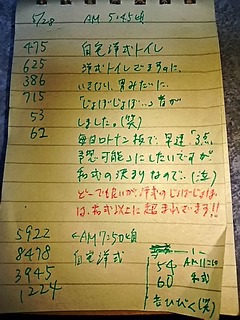 5/28 AM 5:45頃
475 自宅洋式トイレ
625 洋式トイレでますのに、
386 いきなり、男みたいに、
715 「じょぼじょぼ…」音が
53 しました。(笑)
62 毎日ロトナン板で、早速「3点
認可能」にしたいですが
和式の決まりなので、(泣)
どーでも良いが、洋式のじょぼじょぼ
は、和式以上に超まれです!!
5922 ←AM7:50頃
8478 自宅洋式
3945
1224
54 AM11:10
60 和式
音ひびく(笑)